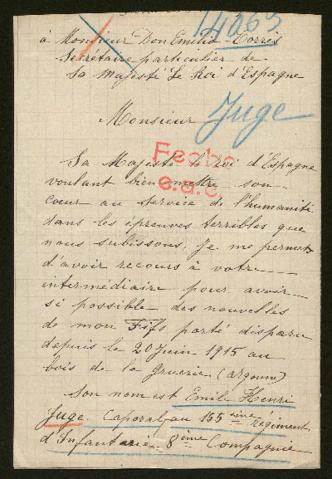 14063
à Monsieur Don Emilio Torrès
Secrétaire particulier de
Sa Majesté Le Roi d'Espagne
Monsieur
Juge
Sa Majesté le roi d'Espagne
voulant bien mettre son
coeur au service de l'humanité
dans les épreuves terribles que
nous subissons, Je me permets
d'avoir recours à votre
intermédiaire pour avoir
si possible des nouvelles
de mon Fils porté disparu
depuis le 20 Juin 1915 au
bois de la Gruerie (argonne)
son nom est Emile Henri
Juge Caporal au 155ème régiment
d'Infanterie 8ème Compagnie